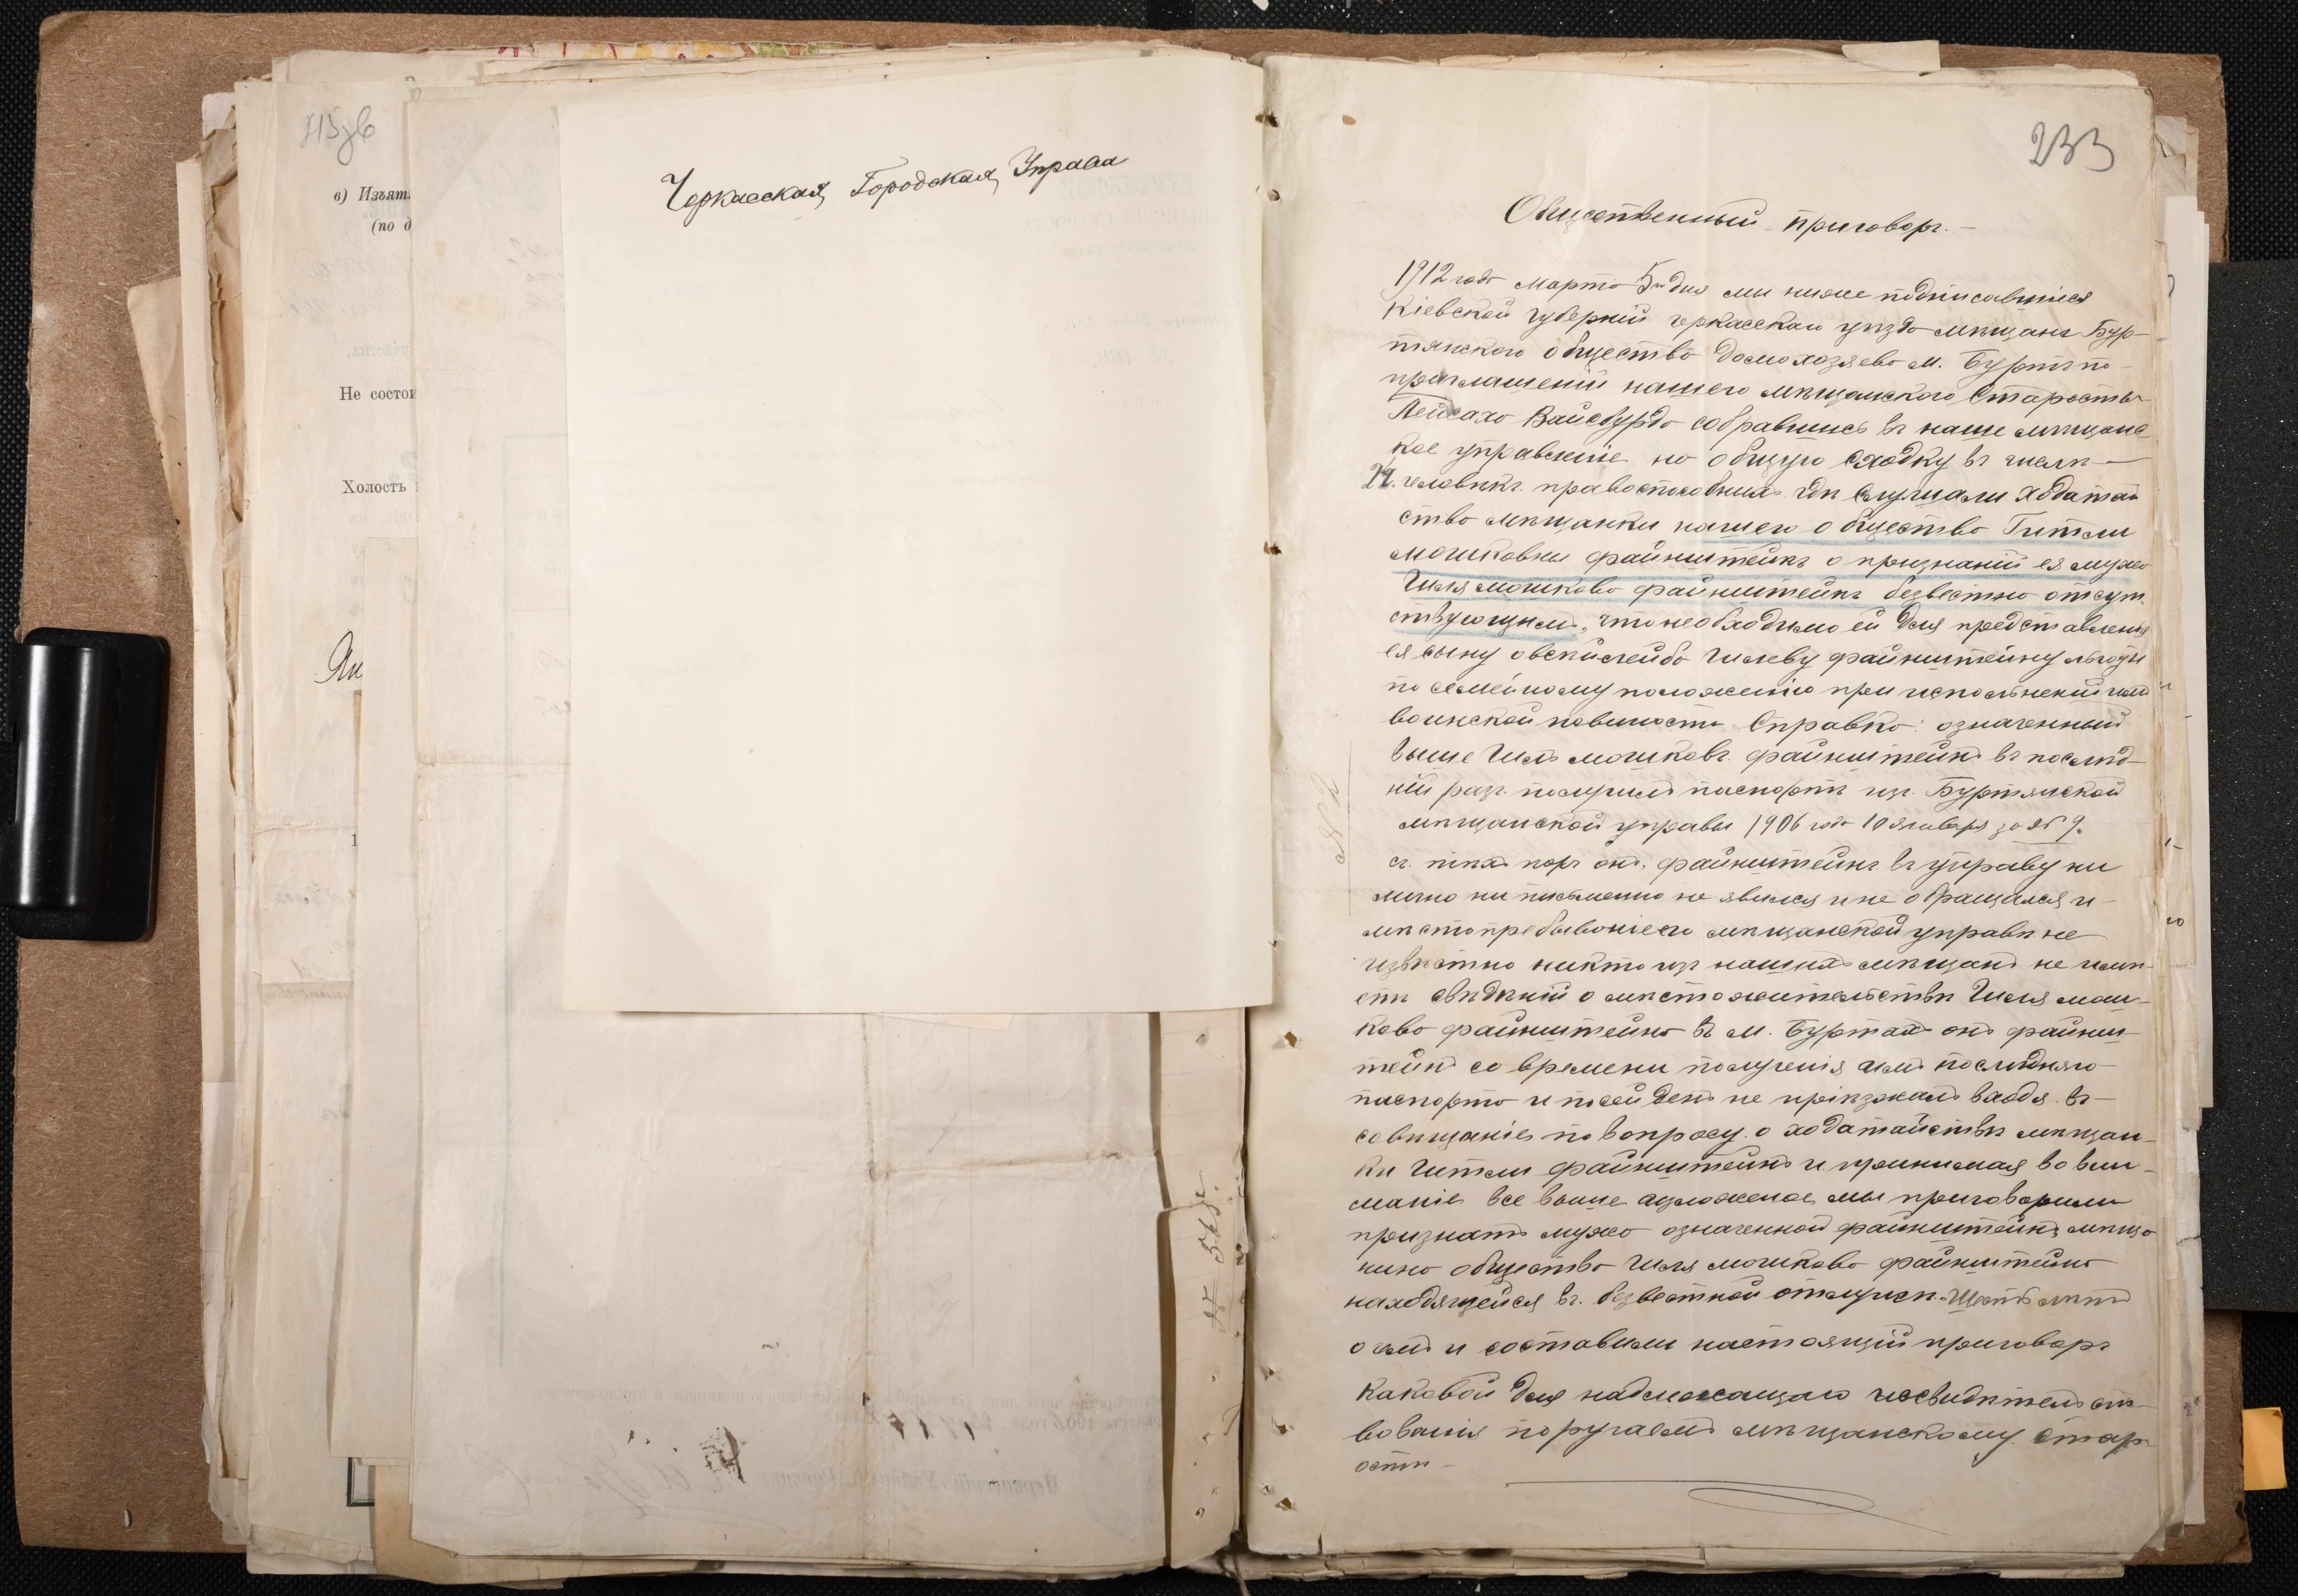 в) Изъят
(по д
Не состои
Холостъ
Ян
Черкасская Городская Управа
233
Общественный приговоръ.
1912 года марта 5го дня мы ниже подписавшіися
Кіевской губерніи черкасскаго уѣзда мѣщане Бур-
тянского общества домохозяева м. Буртъ по
приглашеніи нашего мѣщанского Старосты
Пейсаха Вайсбурда собравшись въ наше мѣщанс
кое управление на общую сходку въ числѣ
24. человѣкъ правоспособныхъ гдѣ слушали ходатай
ство мѣщанки нашего общества Гитли
мошковны файнштейнъ о признаніи ея мужа
Гиля мошкова файнштейнъ безвестно отсут
ствующимъ, что необходимо ей для представленія
ея сыну овсѣй лейбо Гилеву файнштейну льготы
по семейному положенію при исполненіи имъ
воинской повиности Справка: означенный
выше Гиль мошковъ файнштейнъ въ послѣд-
ній разъ получилъ паспортъ изъ Буртянской
мѣщанской управы 1906 года 10 января за № 9.
съ тѣхъ поръ онъ файнштейнъ въ управу ни
лично ни письменно не явился и не обращался и
мѣстопребываніе его мѣщанской управѣ не
извѣстно никто изъ нашихъ мѣщанъ не имѣ-
етъ свѣдѣній о мѣстожительствѣ Гиля мош-
кова файнштейна въ м. Буртахъ онъ файнш-
тейнъ со времени полученія имъ послѣдняго
паспорта и посей день не пріѣзжалъ входя въ
совѣщаніе по вопросу о ходатайствѣ мѣщан-
ки Гитли файнштейнъ и принимая во вни-
маніе все выше изложеное мы приговорили
признать мужа означенной файнштейнъ мѣща
нина общества Гиля мошкова файнштейна
находящейся въ безвестной отлучкѣ шесть лѣтъ
о чемъ и составили настоящій приговоръ
каковой для надлежащаго засвидѣтельст-
вованія поручаемъ мѣщанскому стар-
остѣ